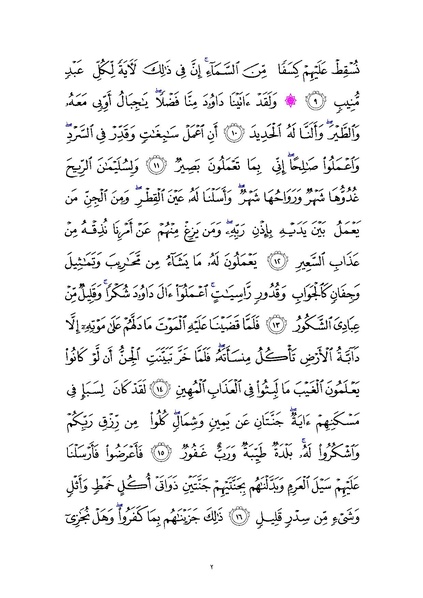 نُسْقِطْ عَلَيْهِمْ كِسَفًا مِّنَ ٱلسَّمَآءِ ۚ إِنَّ فِى ذَٰلِكَ لَآيَةً لِّكُلِّ عَبْدٍ
مُّنِيبٍ ۝٩ ۞ وَلَقَدْ ءَاتَيْنَا دَاوُۥدَ مِنَّا فَضْلًا ۖ يَٰجِبَالُ أَوِّبِى مَعَهُۥ
وَٱلطَّيْرَ ۖ وَأَلَنَّا لَهُ ٱلْحَدِيدَ ۝١٠ أَنِ ٱعْمَلْ سَٰبِغَٰتٍ وَقَدِّرْ فِى ٱلسَّرْدِ ۖ
وَٱعْمَلُوا۟ صَٰلِحًا ۖ إِنِّى بِمَا تَعْمَلُونَ بَصِيرٌ ۝١١ وَلِسُلَيْمَٰنَ ٱلرِّيحَ
غُدُوُّهَا شَهْرٌ وَرَوَاحُهَا شَهْرٌ ۖ وَأَسَلْنَا لَهُۥ عَيْنَ ٱلْقِطْرِ ۖ وَمِنَ ٱلْجِنِّ مَن
يَعْمَلُ بَيْنَ يَدَيْهِ بِإِذْنِ رَبِّهِۦ ۖ وَمَن يَزِغْ مِنْهُمْ عَنْ أَمْرِنَا نُذِقْهُ مِنْ
عَذَابِ ٱلسَّعِيرِ ۝١٢ يَعْمَلُونَ لَهُۥ مَا يَشَآءُ مِن مَّحَٰرِيبَ وَتَمَٰثِيلَ
وَجِفَانٍ كَٱلْجَوَابِ وَقُدُورٍ رَّاسِيَٰتٍ ۚ ٱعْمَلُوٓا۟ ءَالَ دَاوُۥدَ شُكْرًا ۚ وَقَلِيلٌ مِّنْ
عِبَادِىَ ٱلشَّكُورُ ۝١٣ فَلَمَّا قَضَيْنَا عَلَيْهِ ٱلْمَوْتَ مَا دَلَّهُمْ عَلَىٰ مَوْتِهِۦٓ إِلَّا
دَآبَّةُ ٱلْأَرْضِ تَأْكُلُ مِنسَأَتَهُۥ ۖ فَلَمَّا خَرَّ تَبَيَّنَتِ ٱلْجِنُّ أَن لَّوْ كَانُوا۟
يَعْلَمُونَ ٱلْغَيْبَ مَا لَبِثُوا۟ فِى ٱلْعَذَابِ ٱلْمُهِينِ ۝١٤ لَقَدْ كَانَ لِسَبَإٍ فِى
مَسْكَنِهِمْ ءَايَةٌ ۖ جَنَّتَانِ عَن يَمِينٍ وَشِمَالٍ ۖ كُلُوا۟ مِن رِّزْقِ رَبِّكُمْ
وَٱشْكُرُوا۟ لَهُۥ ۚ بَلْدَةٌ طَيِّبَةٌ وَرَبٌّ غَفُورٌ ۝١٥ فَأَعْرَضُوا۟ فَأَرْسَلْنَا
عَلَيْهِمْ سَيْلَ ٱلْعَرِمِ وَبَدَّلْنَٰهُم بِجَنَّتَيْهِمْ جَنَّتَيْنِ ذَوَاتَىْ أُكُلٍ خَمْطٍ وَأَثْلٍ
وَشَىْءٍ مِّن سِدْرٍ قَلِيلٍ ۝١٦ ذَٰلِكَ جَزَيْنَٰهُم بِمَا كَفَرُوا۟ ۖ وَهَلْ نُجَٰزِىٓ
٢